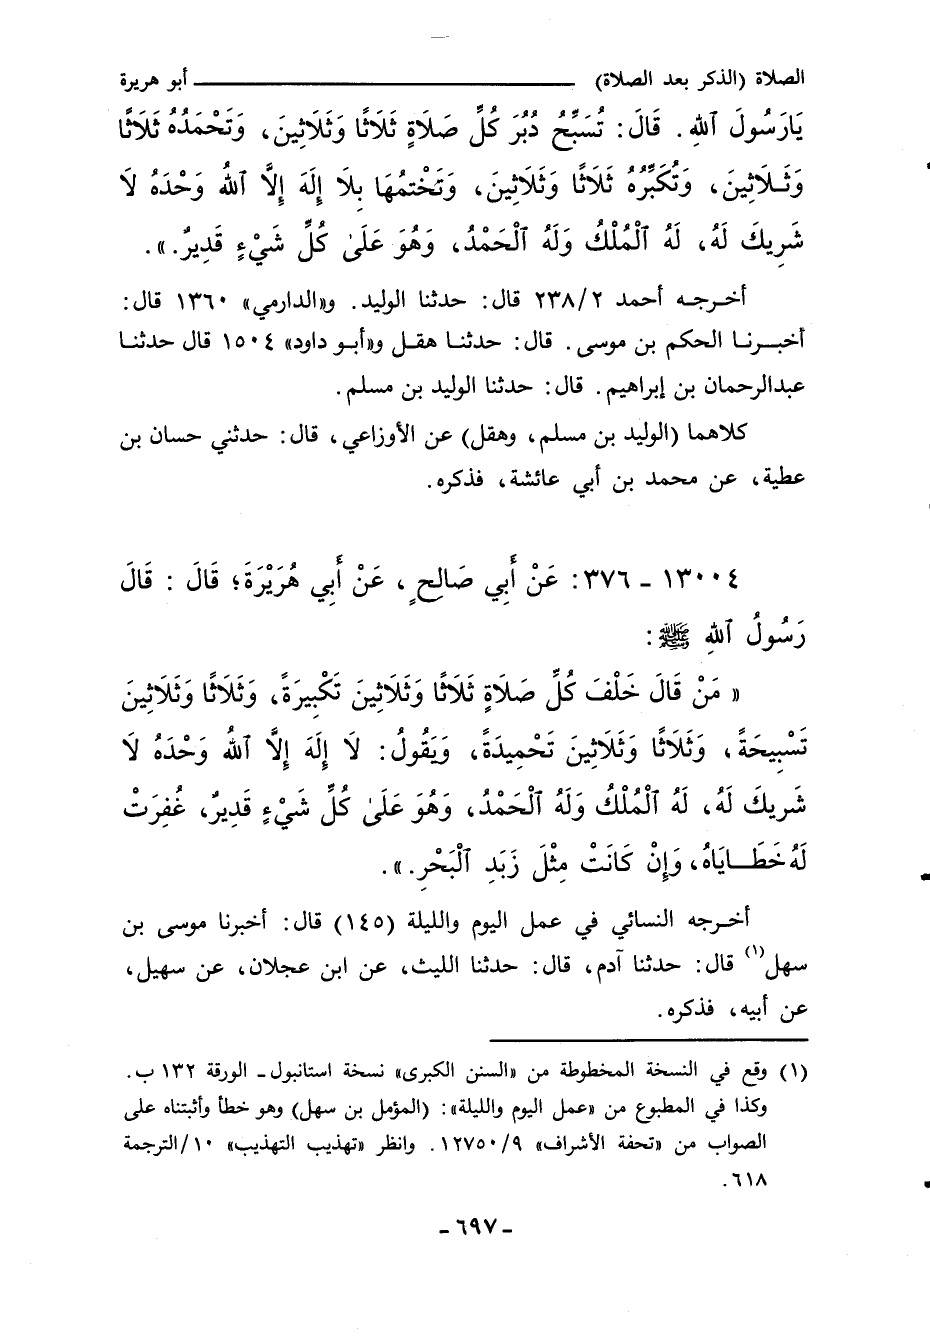 الصلاة (الذكر بعد الصلاة) ــــــــــــــــــــــــ أبو هريرة
يَارَسُولَ ٱللهِ. قَالَ: تُسَبِّحُ دُبُرَ كُلِّ صَلَاةٍ ثَلَاثًا وَثَلَاثِينَ، وَتَحْمَدُهُ ثَلَاثًا
وَثَـلَاثِينَ، وَتُكَبِّرُهُ ثَلَاثًا وَثَلَاثِينَ، وَتَخْتِمُهَا بِلَا إِلَهَ إِلَّا ٱللهُ وَحْدَهُ لَا
شَرِيكَ لَهُ، لَهُ ٱلْمُلْكُ وَلَهُ ٱلْحَمْدُ، وَهُوَ عَلَىٰ كُلِّ شَيْءٍ قَدِيرٌ.».
أخـرجـه أحمد ٢٣٨/٢ قال: حدثنا الوليد. و«الدارمي» ١٣٦٠ قال:
أخبـرنـا الحكم بن موسى. قال: حدثنـا هقـل و«أبـو داود» ١٥٠٤ قال حدثنـا
عبدالرحمان بن إبراهيم. قال: حدثنا الوليد بن مسلم.
كلاهما (الوليد بن مسلم، وهقل) عن الأوزاعي، قال: حدثني حسان بن
عطية، عن محمد بن أبي عائشة، فذكره.
١٣٠٠٤ ـ ٣٧٦: عَنْ أَبِي صَالِحٍ، عَنْ أَبِي هُرَيْرَةَ؛ قَالَ : قَالَ
رَسُولُ ٱللهِ ﷺ:
« مَنْ قَالَ خَلْفَ كُلِّ صَلَاةٍ ثَلَاثًا وَثَلَاثِينَ تَكْبِيرَةً، وَثَلَاثًا وَثَلَاثِينَ
تَسْبِيحَةً، وَثَلَاثًا وَثَلَاثِينَ تَحْمِيدَةً، وَيَقُولُ: لَا إِلَهَ إِلَّا ٱللهُ وَحْدَهُ لَا
شَرِيكَ لَهُ، لَهُ ٱلْمُلْكُ وَلَهُ ٱلْحَمْدُ، وَهُوَ عَلَىٰ كُلِّ شَيْءٍ قَدِيرٌ، غُفِرَتْ
لَهُ خَطَـايَاهُ، وَإِنْ كَانَتْ مِثْلَ زَبَدِ ٱلْبَحْرِ.».
أخـرجه النسائي في عمل اليوم والليلة (١٤٥) قال: أخبرنا موسى بن
سهل(١) قال: حدثنا آدم، قال: حدثنا الليث، عن ابن عجلان، عن سهيل،
عن أبيه، فذكره.
(١) وقع في النسخة المخطوطة من «السنن الكبرى» نسخة استانبول ـ الورقة ١٣٢ ب.
وكذا في المطبوع من «عمل اليوم والليلة»: (المؤمل بن سهل) وهو خطأ وأثبتناه على
الصواب من «تحفة الأشراف» ١٢٧٥٠/٩. وانظر «تهذيب التهذيب» ١٠/الترجمة
٦١٨.
ـ ٦٩٧ ـ